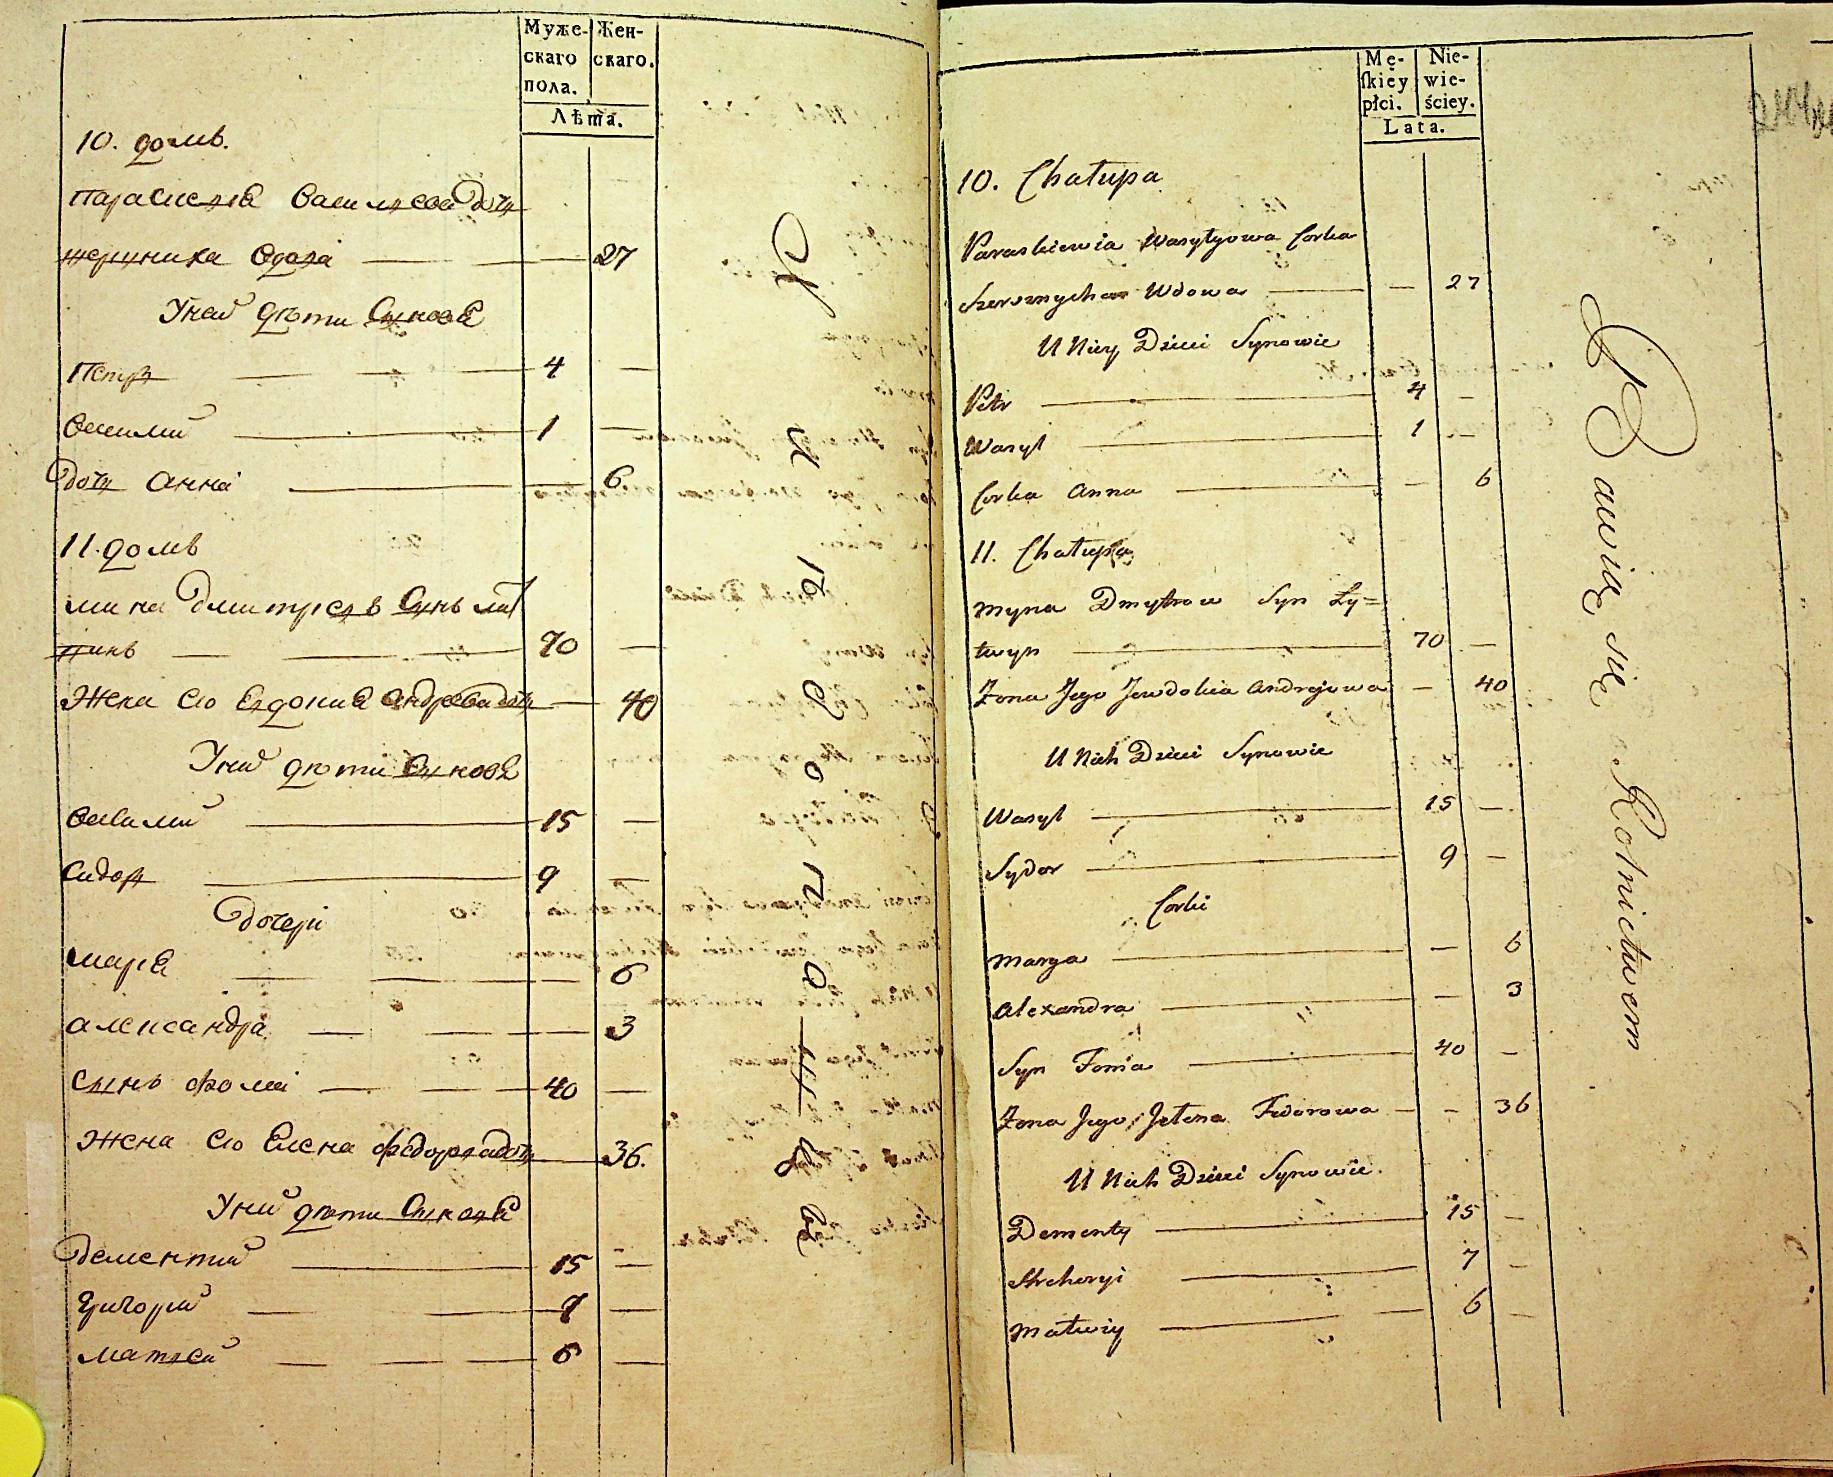 Муже-
скаго
пола.
Жен-
скаго.
Лѣта.
10. домъ.
Параскевія Василева дочь
27
У ней дѣти Сыновя
Петръ — 4 —
Василий — 1 —
дочь Анна — 6.
11. домъ
Мина Дмитріевъ Сынъ Лит
винъ — 70 —
Жена Его Евдокия Андреева дочь — 40
У них дѣти Сыновя
Василий — 15 —
Сидоръ — 9 —
Дочери
Мария — 6
Александра — 3
Сынъ Фома — 40 —
Жена Его Елена Федорова дочь — 36.
У них дѣти Сыновя
Дементий — 15 —
Григорий — 7 —
Матвей — 6 —
Mę-
skiéy
płci.
Nie-
wie-
ściey.
Lata.
10. Chałupa
Paraskiewia Wasylyowa Corka
Wdowa — 27
U Niey Dzieci Synowie
Petr — 4 —
Wasyl — 1 —
Corka Anna — 6
11. Chałupa
Myna Dmytrow Syn Ly=
twyn — 70 —
Żona Jego Jewdokia Andrejowa — 40
U Nich Dzieci Synowie
Wasyl — 15 —
Sydor — 9 —
Corki
Marya — 6
Alexandra — 3
Syn Foma — 40 —
Żona Jego Jelena Fedorowa — 36
U Nich Dzieci Synowie.
Dementy — 15 —
Hrehoryi — 7 —
Matwiy — 6 —
Bawią się Rolnictwem